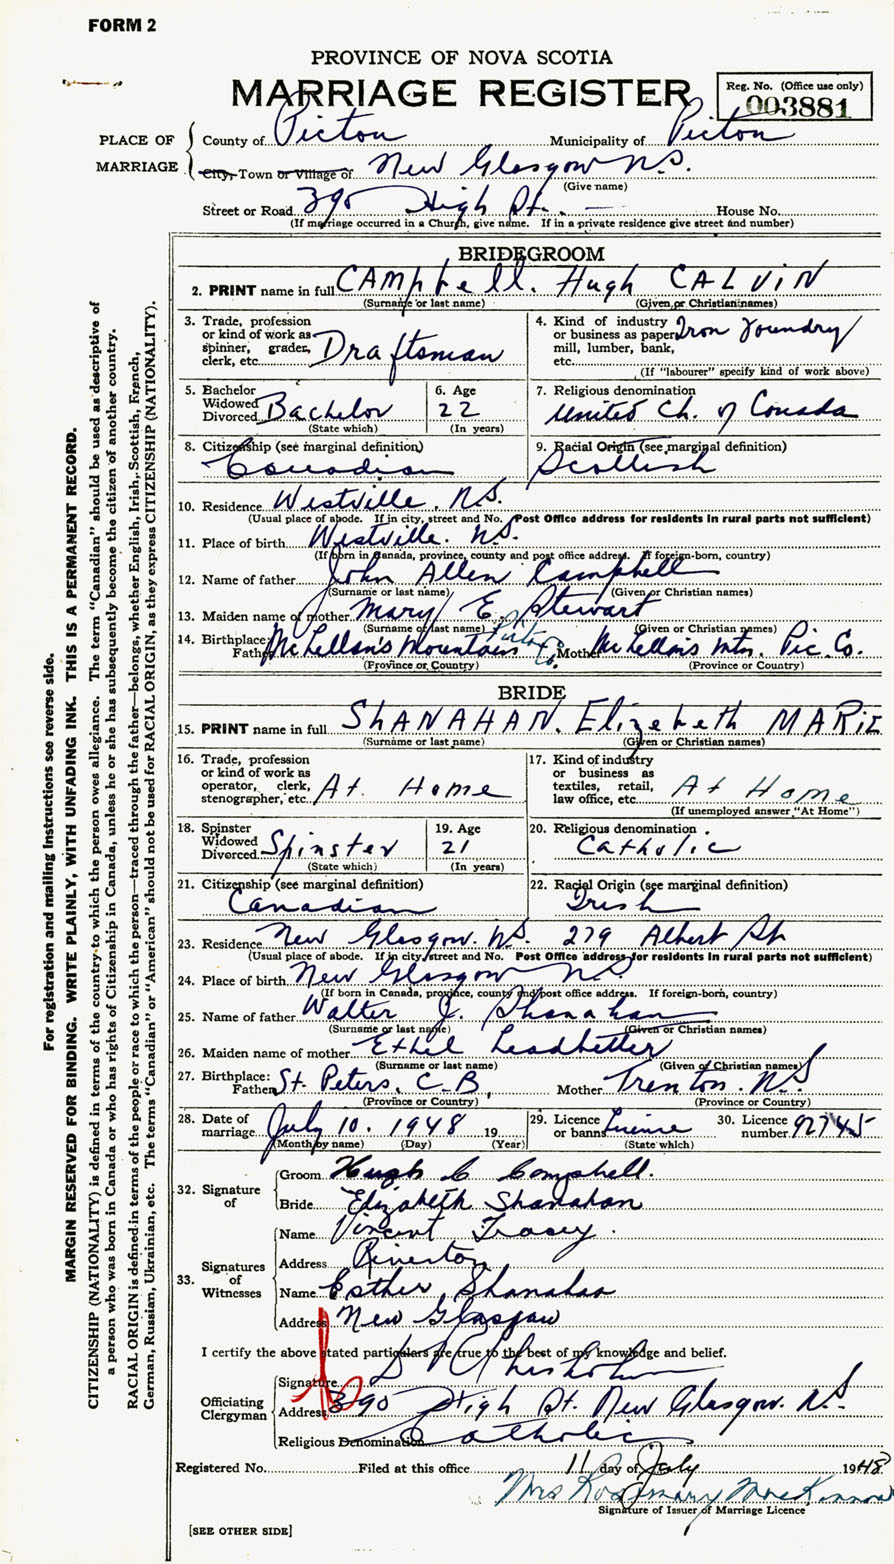 FORM 2
PROVINCE OF NOVA SCOTIA
MARRIAGE REGISTER
Reg. No. (Office use only)
003881
PLACE OF MARRIAGE
County of Pictou Municipality of Pictou
City, Town or Village of New Glasgow N.S.
(Give name)
Street or Road 390 High St. — House No.
(If marriage occurred in a Church, give name. If in a private residence give street and number)
BRIDEGROOM
2. PRINT name in full CAMpbell. Hugh CALVIN
(Surname or last name) (Given or Christian names)
3. Trade, profession or kind of work as spinner, grader, clerk, etc. Draftsman
4. Kind of industry or business as paper mill, lumber, bank, etc. Iron Foundry
(If "labourer" specify kind of work above)
5. Bachelor Widowed Divorced Bachelor
(State which)
6. Age 22
(In years)
7. Religious denomination
United Ch. of Canada
8. Citizenship (see marginal definition)
Canadian
9. Racial Origin (see marginal definition)
Scottish
10. Residence Westville, N.S.
(Usual place of abode. If in city, street and No. Post Office address for residents in rural parts not sufficient)
11. Place of birth Westville. N.S.
(If born in Canada, province, county and post office address. If foreign-born, country)
12. Name of father John Allen Campbell
(Surname or last name) (Given or Christian names)
13. Maiden name of mother Mary E. Stewart
(Surname or last name) (Given or Christian names)
14. Birthplace: Father McLellan's Mountain Pictou Co. Mother McLellan's Mtn. Pic. Co.
(Province or Country) (Province or Country)
BRIDE
15. PRINT name in full SHANAHAN. Elizebeth MARiE
(Surname or last name) (Given or Christian names)
16. Trade, profession or kind of work as operator, clerk, stenographer, etc. At Home
17. Kind of industry or business as textiles, retail, law office, etc. At Home
(If unemployed answer "At Home")
18. Spinster Widowed Divorced Spinster
(State which)
19. Age 21
(In years)
20. Religious denomination
Catholic
21. Citizenship (see marginal definition)
Canadian
22. Racial Origin (see marginal definition)
Irish
23. Residence New Glasgow. N.S. 279 Albert St
(Usual place of abode. If in city, street and No. Post Office address for residents in rural parts not sufficient)
24. Place of birth New Glasgow N.S.
(If born in Canada, province, county and post office address. If foreign-born, country)
25. Name of father Walter J. Shanahan
(Surname or last name) (Given or Christian names)
26. Maiden name of mother Ethel Leadbetter
(Surname or last name) (Given or Christian names)
27. Birthplace: Father St. Peters, C.B. Mother Trenton. N.S.
(Province or Country) (Province or Country)
28. Date of marriage July 10. 1948 19
(Month by name) (Day) (Year)
29. Licence or banns Licence
(State which)
30. Licence number 92745
32. Signature of
Groom Hugh C Campbell.
Bride Elizabeth Shanahan
33. Signatures of Witnesses
Name Vincent Tracey.
Address Riverton
Name Esther Shanahan
Address New Glasgow
I certify the above stated particulars are true to the best of my knowledge and belief.
Officiating Clergyman
Signature D Chisholm
Address 390 High St. New Glasgow. N.S.
Religious Denomination Catholic
Registered No. Filed at this office 11 day of July 1948
Mrs Rosemary MacKinnon
Signature of Issuer of Marriage Licence
[SEE OTHER SIDE]
For registration and mailing instructions see reverse side.
MARGIN RESERVED FOR BINDING. WRITE PLAINLY, WITH UNFADING INK. THIS IS A PERMANENT RECORD.
CITIZENSHIP (NATIONALITY) is defined in terms of the country to which the person owes allegiance. The term "Canadian" should be used as descriptive of
a person who was born in Canada or who has rights of Citizenship in Canada, unless he or she has subsequently become the citizen of another country.
RACIAL ORIGIN is defined in terms of the people or race to which the person—traced through the father—belongs, whether English, Irish, Scottish, French,
German, Russian, Ukrainian, etc. The terms "Canadian" or "American" should not be used for RACIAL ORIGIN, as they express CITIZENSHIP (NATIONALITY).